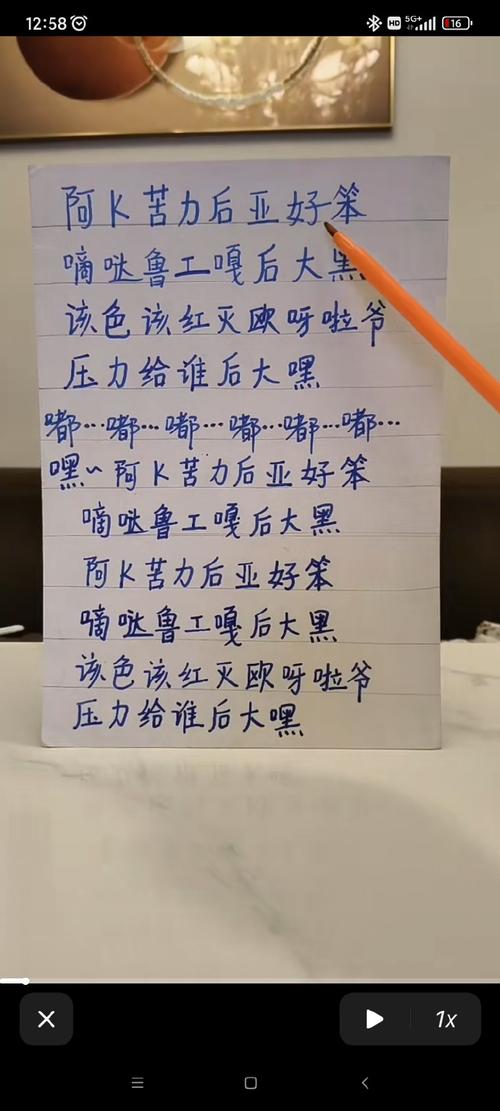 12:58
HD 5G+ 16
阿K苦力后亚好笨
嘀哒鲁工嘎后大黑
该色该红灭欧呀啦爷
压力给谁后大嘿
嘟…嘟…嘟…嘟…嘟…嘟…
嘿~阿K苦力后亚好笨
嘀哒鲁工嘎后大黑
阿K苦力后亚好笨
嘀哒鲁工嘎后大黑
该色该红灭欧呀啦爷
压力给谁后大嘿
1x